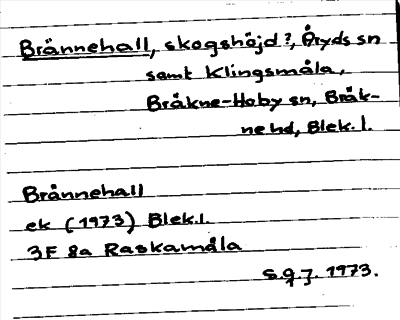 Brännehall, skogshöjd?, Åryds sn
samt Klingsmåla,
Bräkne-Hoby sn, Bräk-
ne hd, Blek. l.
Brännehall
ek (1973) Blek. l.
3F 8a Raskamåla
S.g.j. 1973.